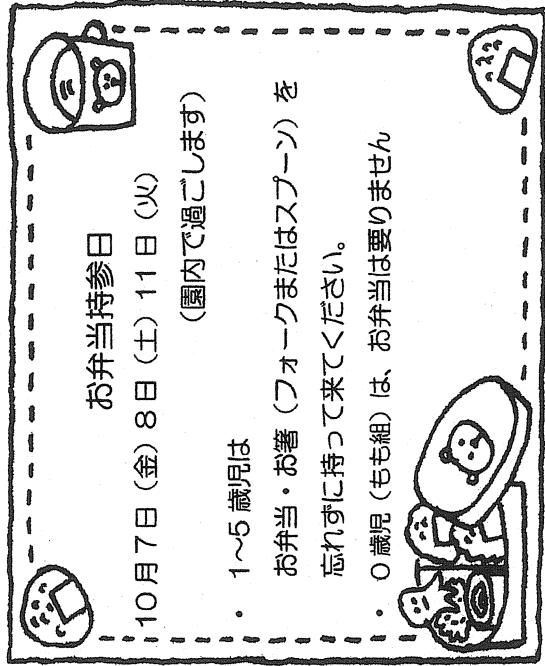 お弁当持参日
10月7日（金）8日（土）11日（火）
（園内で過ごします）
・ 1～5歳児は
お弁当・お箸（フォークまたはスプーン）を
忘れずに持って来てください。
・ 0歳児（もも組）は、お弁当は要りません